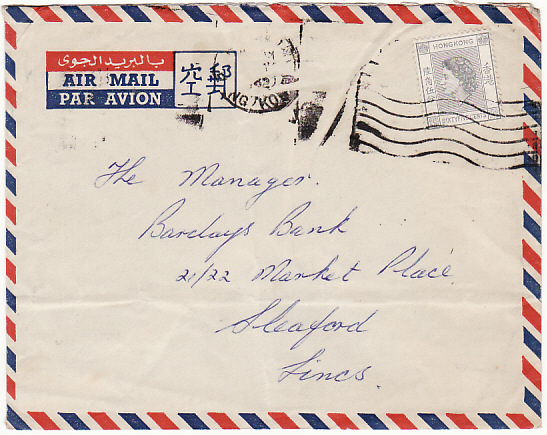 بالبريد الجوى
AIR MAIL
PAR AVION
空郵
HONGKONG
SIXTYFIVE CENTS
The Manager.
Barclays Bank
21/22 Market Place.
Sleaford
Lincs.